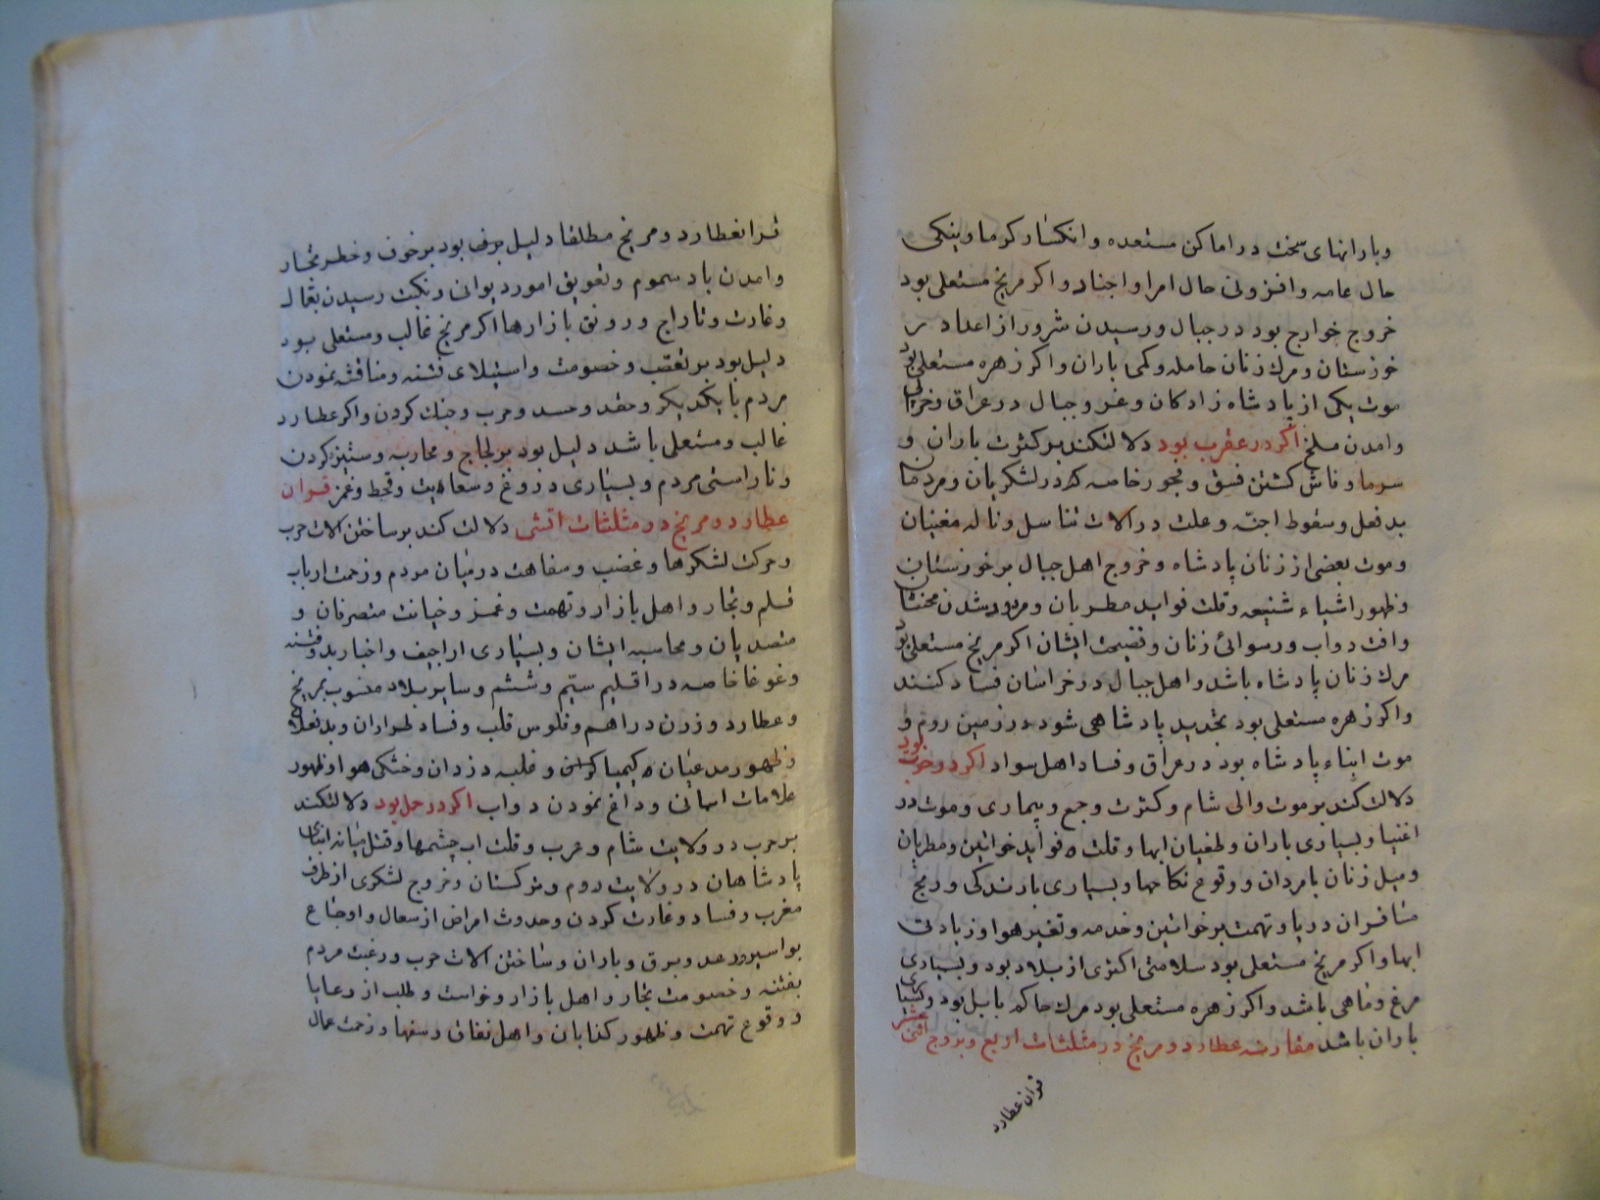 وبارانهای سخت در اماکن مستعده و انکسار کرما و نیکی
حال عامه و افزونی حال امرا و اجناد و اکر مریخ مستعلی بود
خروج خوارج بود در جبال و رسیدن شرور از اعداد بر
خوزستان و مرك زنان حامله و کمی باران و اکر زهره مستعلی بود
موت یکی از پادشاه زادکان و غز و جبال در عراق و خرابی
و امدن ملخ اکر در عقرب بود دلالت کند بر کثرت باران و
سرما و فاش کشتن فسق و فجور خاصه که در لشکریان و مردمان
بد فعل و سقوط اجنّه و علت در الات تناسل و ناله مغنیان
و موت بعضی از زنان پادشاه و خروج اهل جبال بر خوزستان
و ظهور اشیاء شنیعه و قلت فواید مطربان و مردود شدن مخنثان
و افت دواب و رسوائی زنان و فضیحت ایشان اکر مریخ مستعلی بود
مرك زنان پادشاه باشد و اهل جبال در خراسان فساد کنند
و اکر زهره مستعلی بود تجدید پادشاهی شود در زمین روم و
موت ابناء پادشاه بود در عراق و فساد اهل سواد اکر در حوت بود
دلالت کند بر موت والی شام و کثرت وجع و بیماری و موت در
اغنیا و بسیاری باران و طغیان ابها و قلت فواید خواتین و مطربان
و میل زنان بامردان و وقوع نکاحها و بسیاری بارندکی و رنج
مسافران دریا و تهمت بر خواتین و خدمه و تغیر هوا و زیادتی
ابها و اکر مریخ مستعلی بود سلامتی اکثری از بلاد بود و بسیاری
مرغ و ماهی باشد و اکر زهره مستعلی بود مرك حاکم بابل بود و بسیاری
باران باشد مقارنه عطارد و مریخ در مثلثات اربع و بروج اثنی عشر
قران عطارد
قران عطارد و مریخ مطلقا دلیل بود بر خوف و خطر تجار
و امدن باد سموم و تعویق امور دیوانی و نکبت رسیدن بعمال
و غارت و تاراج و رونق بازارها اکر مریخ غالب و مستعلی بود
دلیل بود بر تعصّب و خصومت و استیلای فتنه و مناقشه نمودن
مردم با یکدیکر و حقد و حسد و حرب و جنك کردن و اکر عطارد
غالب و مستعلی باشد دلیل بود بر لجاج و محاربه و ستیزکردن
و ناراستی مردم و بسیاری دروغ و سعایت و قحط و غمز قران
عطارد و مریخ در مثلثات اتشی دلالت کند بر ساختن الات حرب
و حرکت لشکرها و غضب و سفاهت در میان مردم و زحمت ارباب
قلم و تجار و اهل بازار و تهمت و غمز و خیانت متصرفان و
متصدیان و محاسبه ایشان و بسیاری اراجیف و اخبار بد و فتنه
و غوغا خاصه در اقلیم سیّم و ششم و سایر بلاد منسوب بمریخ
و عطارد و زدن دراهم و فلوس قلب و فساد طراران و بدفعلان
و ظهور مدعیان کیمیا کری و غلبه دزدان و خشکی هوا و ظهور
علامات اسمانی و داغ نمودن دواب اکر در حمل بود دلالت کند
بر حرب در ولایت شام و عرب و قلت اب چشمها و قتل میانه ابنای
پادشاهان در ولایت روم و ترکستان و خروج لشکری از طرف
مغرب و فساد و غارت کردن و حدوث امراض از سعال و اوجاع
بواسیر و رعد و برق و باران و ساختن الات حرب و رغبت مردم
بفتنه و خصومت تجار و اهل بازار و خواست و طلب از رعایا
و وقوع تهمت و ظهور کذابان و اهل نفاق و سفها و زحمت عمال